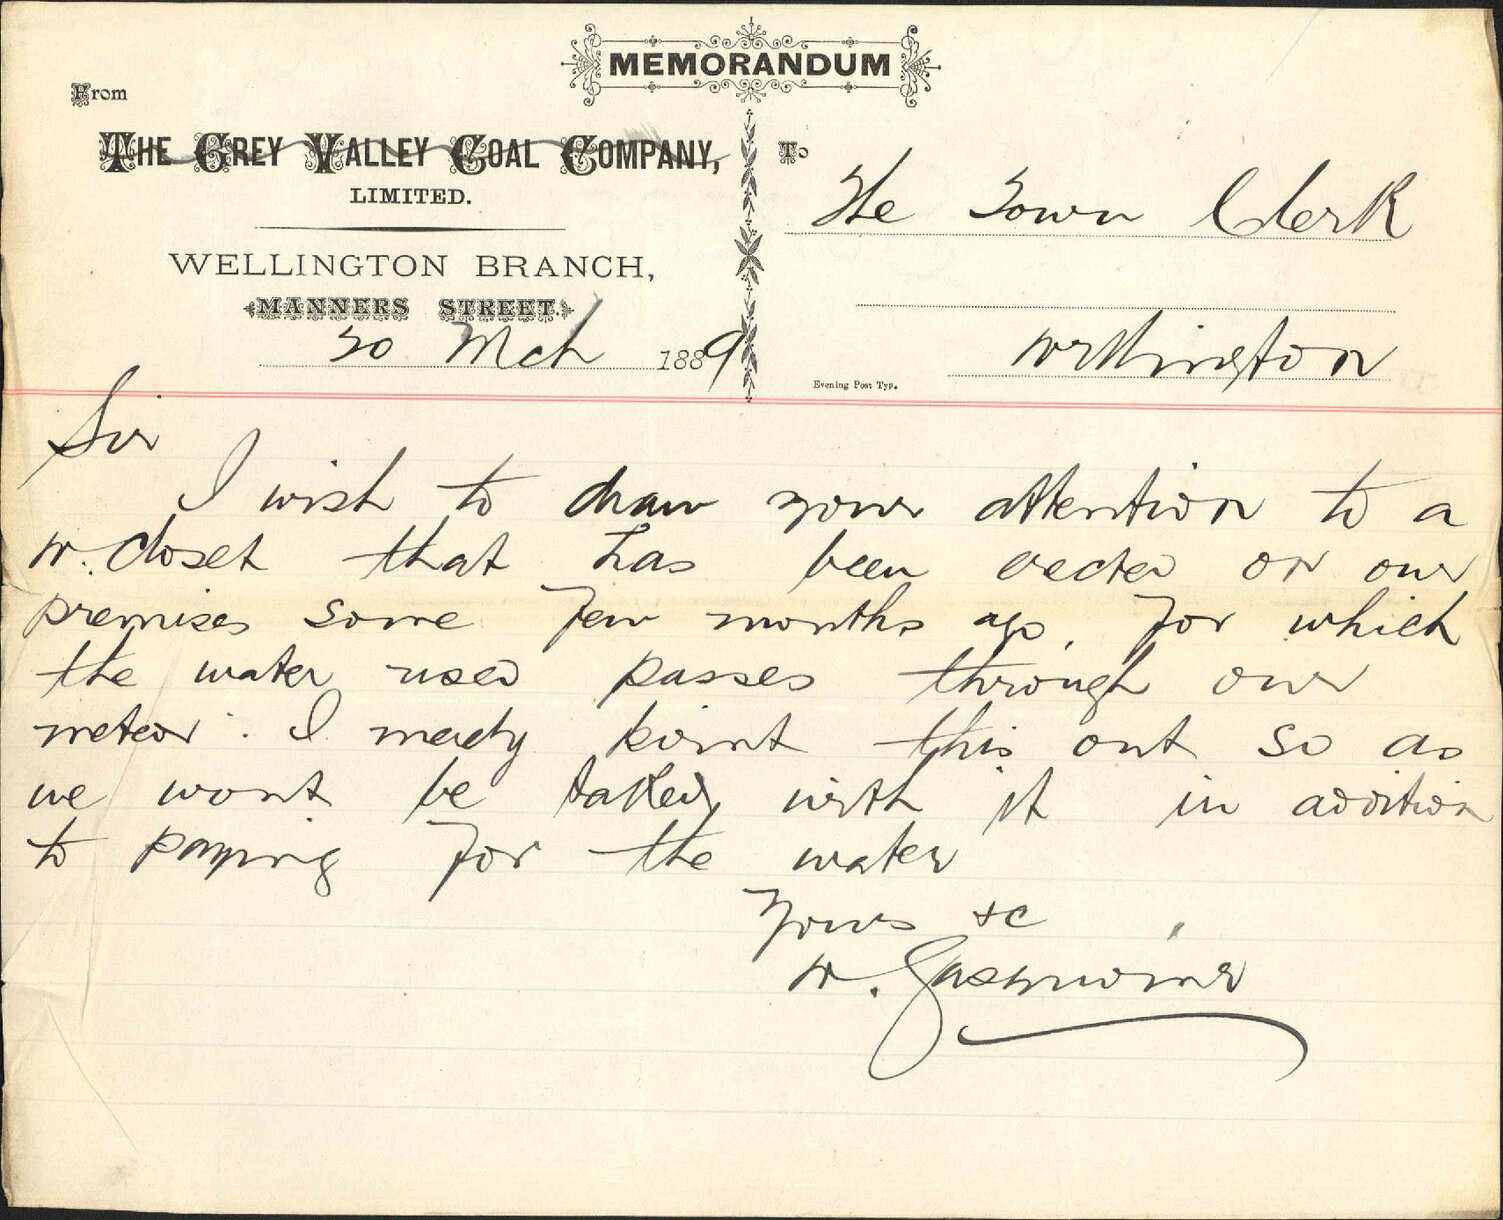 MEMORANDUM
From
THE GREY VALLEY COAL COMPANY,
LIMITED.
WELLINGTON BRANCH,
MANNERS STREET.
20 Mch 1889
To
The Town Clerk
Wellington
Evening Post Typ.
Sir
I wish to draw your attention to a
W. Closet that has been erected on our
premises some few months ago, for which
the water used passes through our
meter. I merely point this out so as
we wont be taxed with it in addition
to paying for the water
Yours &c
W.